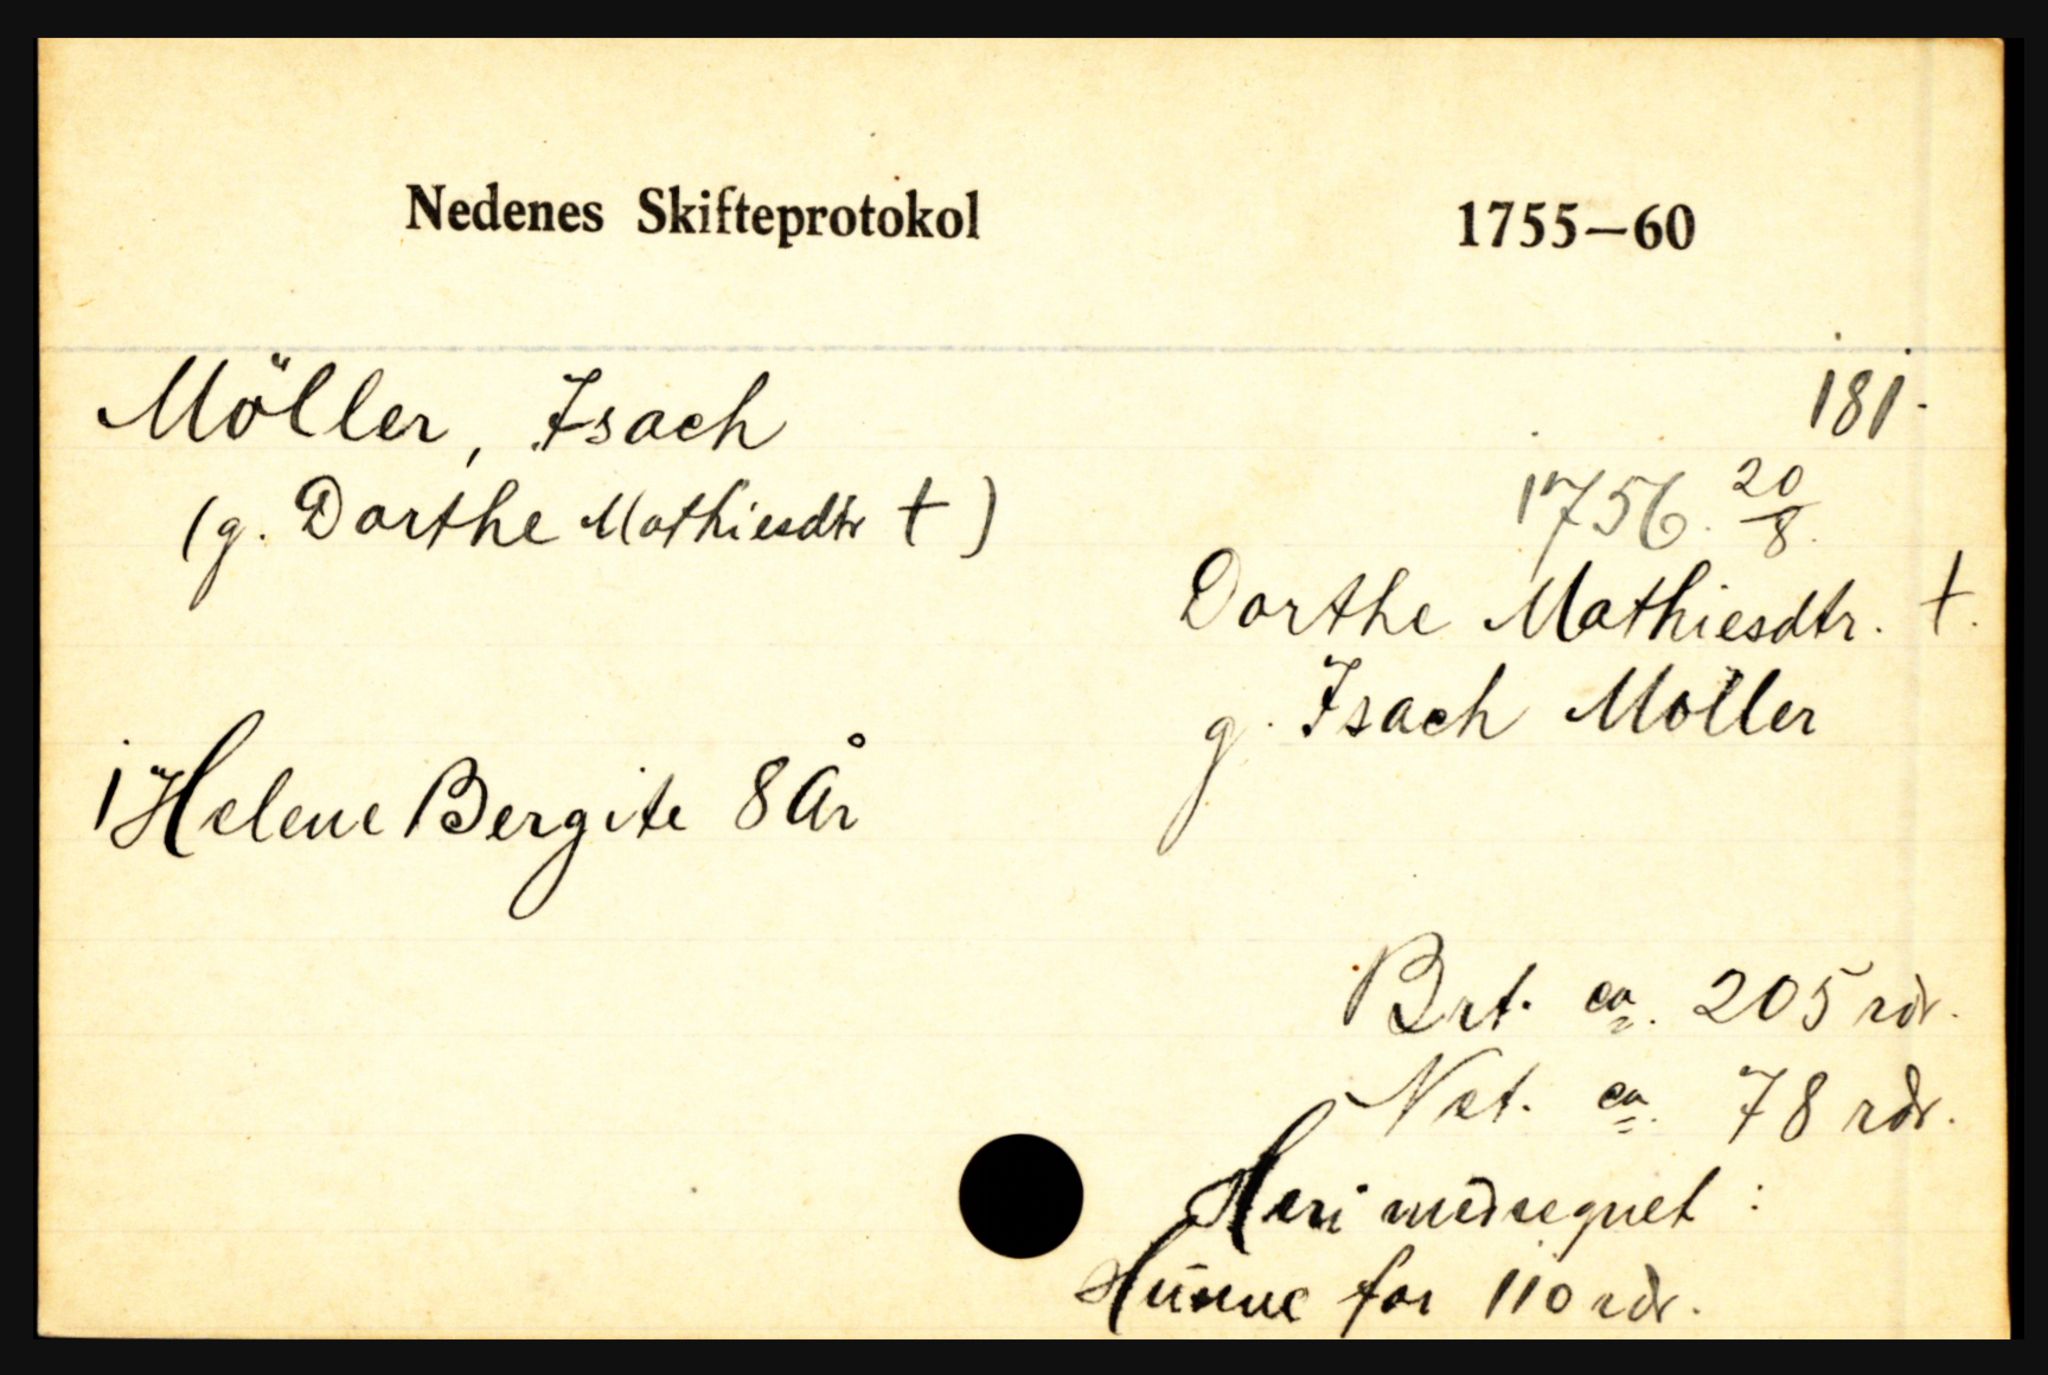 Nedenes Skifteprotokol 1755—60
Möller, Isach 181.
(g. Dorthe Mathiesdtr †) 1756. 20/8.
Dorthe Mathiesdtr. †.
g. Isach Möller
1 Helene Bergite 8 År
Brt. ca. 205 rdr.
Net. ca. 78 rdr.
Heri medregnet :
Husene for 110 rdr.